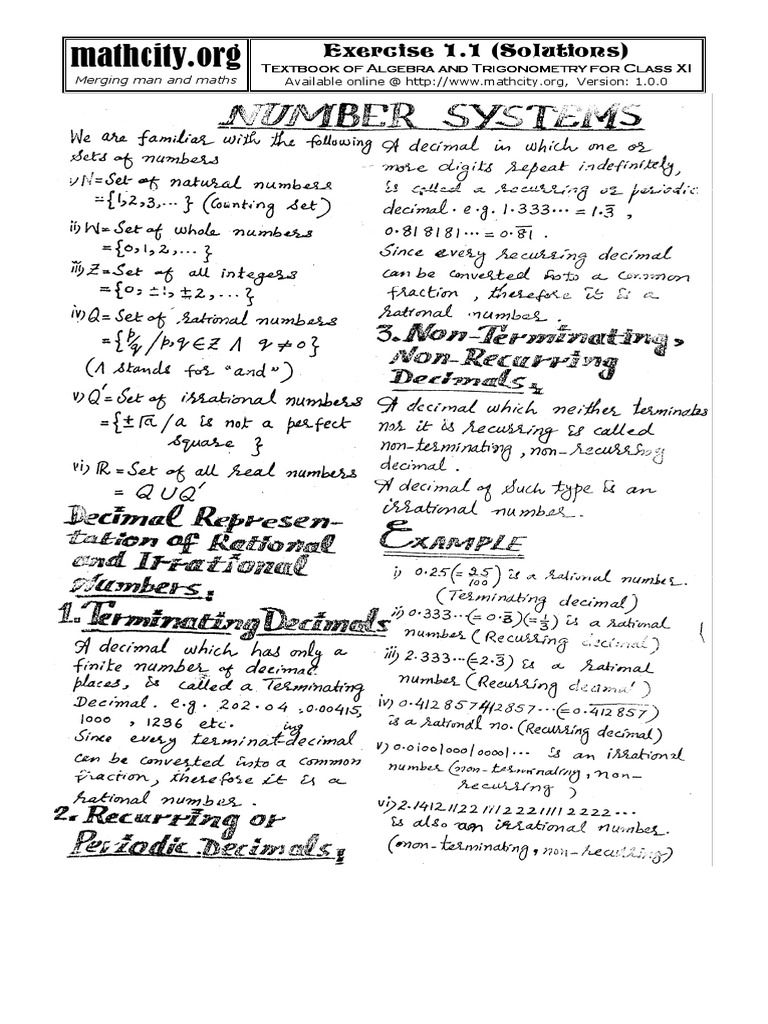 mathcity.org
Merging man and maths
Exercise 1.1 (Solutions)
Textbook of Algebra and Trigonometry for Class XI
Available online @ http://www.mathcity.org, Version: 1.0.0
NUMBER SYSTEMS
We are familiar with the following
sets of numbers
i) N=Set of natural numbers
={1,2,3,...} (Counting Set)
ii) W=Set of whole numbers
={0,1,2,...}
iii) Z=Set of all integers
={0,±1,±2,...}
iv) Q=Set of rational numbers
={p/q /p,q∈Z Λ q≠0}
(Λ stands for "and")
v) Q'=Set of irrational numbers
={±√a /a is not a perfect
square }
vi) R=Set of all real numbers
= Q∪Q'
Decimal Represen-
tation of Rational
and Irrational
Numbers:
1. Terminating Decimals
A decimal which has only a
finite number of decimal
places, is called a Terminating
Decimal. e.g. 202.04, 0.00415,
1000, 1236 etc.
Since every terminating decimal
can be converted into a common
fraction, therefore it is a
rational number.
2. Recurring or
Periodic Decimals:
A decimal in which one or
more digits repeat indefinitely,
is called a recurring or periodic
decimal. e.g. 1.333... = 1.3̅ ,
0.818181... = 0.8̅1̅ .
Since every recurring decimal
can be converted into a common
fraction, therefore it is a
rational number.
3. Non-Terminating,
Non-Recurring
Decimals:
A decimal which neither terminates
nor it is recurring is called
non-terminating, non-recurring
decimal.
A decimal of such type is an
irrational number.
EXAMPLE
i) 0.25(=25/100) is a rational number.
(Terminating decimal)
ii) 0.333...(=0.3̅)(=1/3) is a rational
number (Recurring decimal)
iii) 2.333...(=2.3̅) is a rational
number (Recurring decimal)
iv) 0.412857412857...(=0.4̅1̅2̅8̅5̅7̅)
is a rational no. (Recurring decimal)
v) 0.01001000100001... is an irrational
number (non-terminating, non-
recurring)
vi) 2.1412112211122211112222...
is also an irrational number.
(non-terminating, non-recurring)